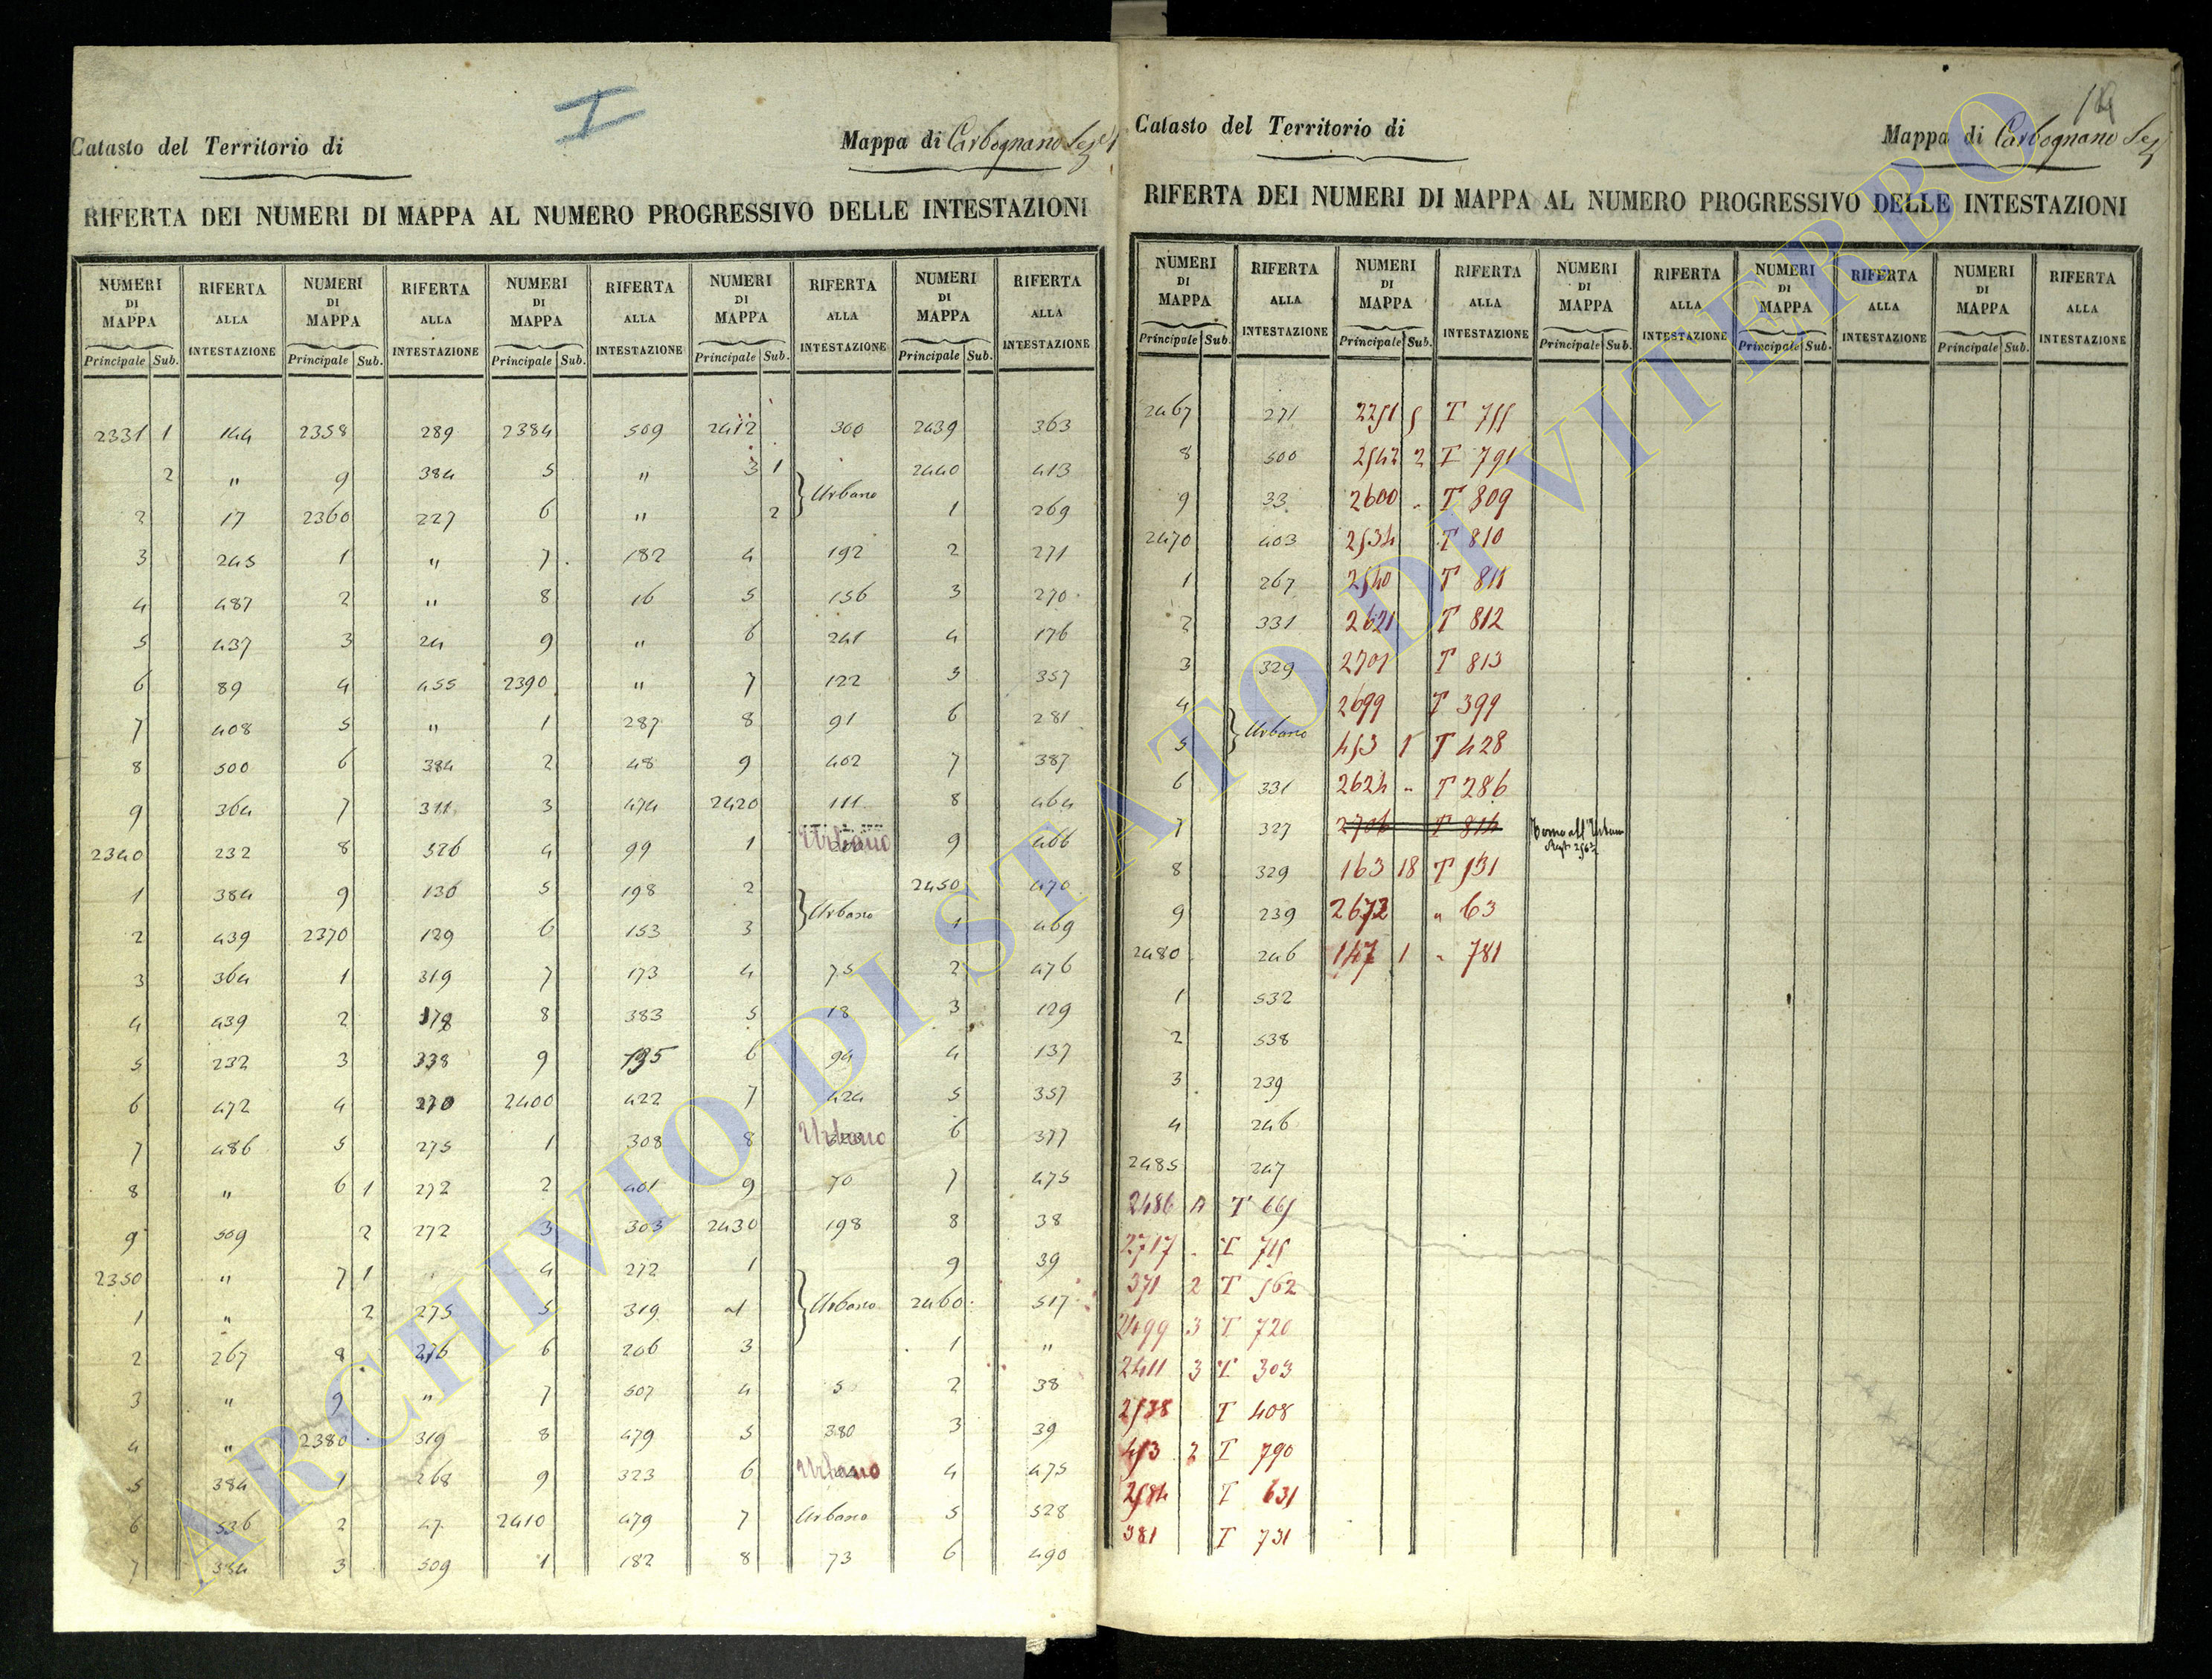 I
Catasto del Territorio di
Mappa di Carbognano Sez
RIFERTA DEI NUMERI DI MAPPA AL NUMERO PROGRESSIVO DELLE INTESTAZIONI
NUMERI DI MAPPA RIFERTA ALLA INTESTAZIONE NUMERI DI MAPPA RIFERTA ALLA INTESTAZIONE NUMERI DI MAPPA RIFERTA ALLA INTESTAZIONE NUMERI DI MAPPA RIFERTA ALLA INTESTAZIONE NUMERI DI MAPPA RIFERTA ALLA INTESTAZIONE
Principale Sub. Principale Sub. Principale Sub. Principale Sub. Principale Sub.
2331 1 144 2358 289 2384 509 2412 300 2439 363
2 " 9 384 5 " 3 1 Urbano 2440 413
2 17 2360 227 6 " 2 1 269
3 245 1 " 7 182 4 192 2 271
4 487 2 " 8 16 5 156 3 270
5 437 3 24 9 " 6 241 4 176
6 89 4 455 2390 " 7 122 5 357
7 408 5 " 1 287 8 91 6 281
8 500 6 384 2 48 9 402 7 387
9 364 7 311 3 474 2420 111 8 464
2340 232 8 526 4 99 1 Urbano 9 466
1 384 9 136 5 198 2 Urbano 2450 470
2 439 2370 129 6 153 3 1 469
3 364 1 319 7 173 4 75 2 476
4 439 2 178 8 383 5 18 3 129
5 232 3 338 9 195 6 94 4 137
6 472 4 270 2400 422 7 424 5 357
7 486 5 275 1 308 8 Urbano 6 377
8 " 6 1 272 2 401 9 70 7 475
9 509 2 272 3 303 2430 198 8 38
2350 " 7 1 4 272 1 9 39
1 " 2 275 5 319 Urbano 2460 517
2 267 8 276 6 206 3 1 "
3 " 9 " 7 507 4 5 2 38
4 " 2380 319 8 479 5 380 3 39
5 384 1 268 9 323 6 Urbano 4 475
6 536 2 47 2410 479 7 Urbano 5 528
7 384 3 509 1 182 8 73 6 490
Catasto del Territorio di
Mappa di Carbognano Sez
RIFERTA DEI NUMERI DI MAPPA AL NUMERO PROGRESSIVO DELLE INTESTAZIONI
NUMERI DI MAPPA RIFERTA ALLA INTESTAZIONE NUMERI DI MAPPA RIFERTA ALLA INTESTAZIONE NUMERI DI MAPPA RIFERTA ALLA INTESTAZIONE NUMERI DI MAPPA RIFERTA ALLA INTESTAZIONE NUMERI DI MAPPA RIFERTA ALLA INTESTAZIONE
Principale Sub. Principale Sub. Principale Sub. Principale Sub. Principale Sub.
2467 271 2251 5 T 755
8 500 2542 2 T 791
9 33 2600 " T 809
2470 403 2534 T 810
1 267 2540 T 811
2 331 2621 T 812
3 329 2701 T 813
4 Urbano 2699 T 399
5 453 1 T 428
6 331 2624 " T 286
7 327 2706 T 814
8 329 163 18 T 531
9 239 2672 " 63
2480 246 147 1 " 781
1 532
2 538
3 239
4 246
2485 247
2486 A T 665
2717 " T 715
371 2 T 562
2499 3 T 720
2411 3 T 303
2538 T 408
453 2 T 790
2584 T 631
381 T 731
ARCHIVIO DI STATO DI VITERBO